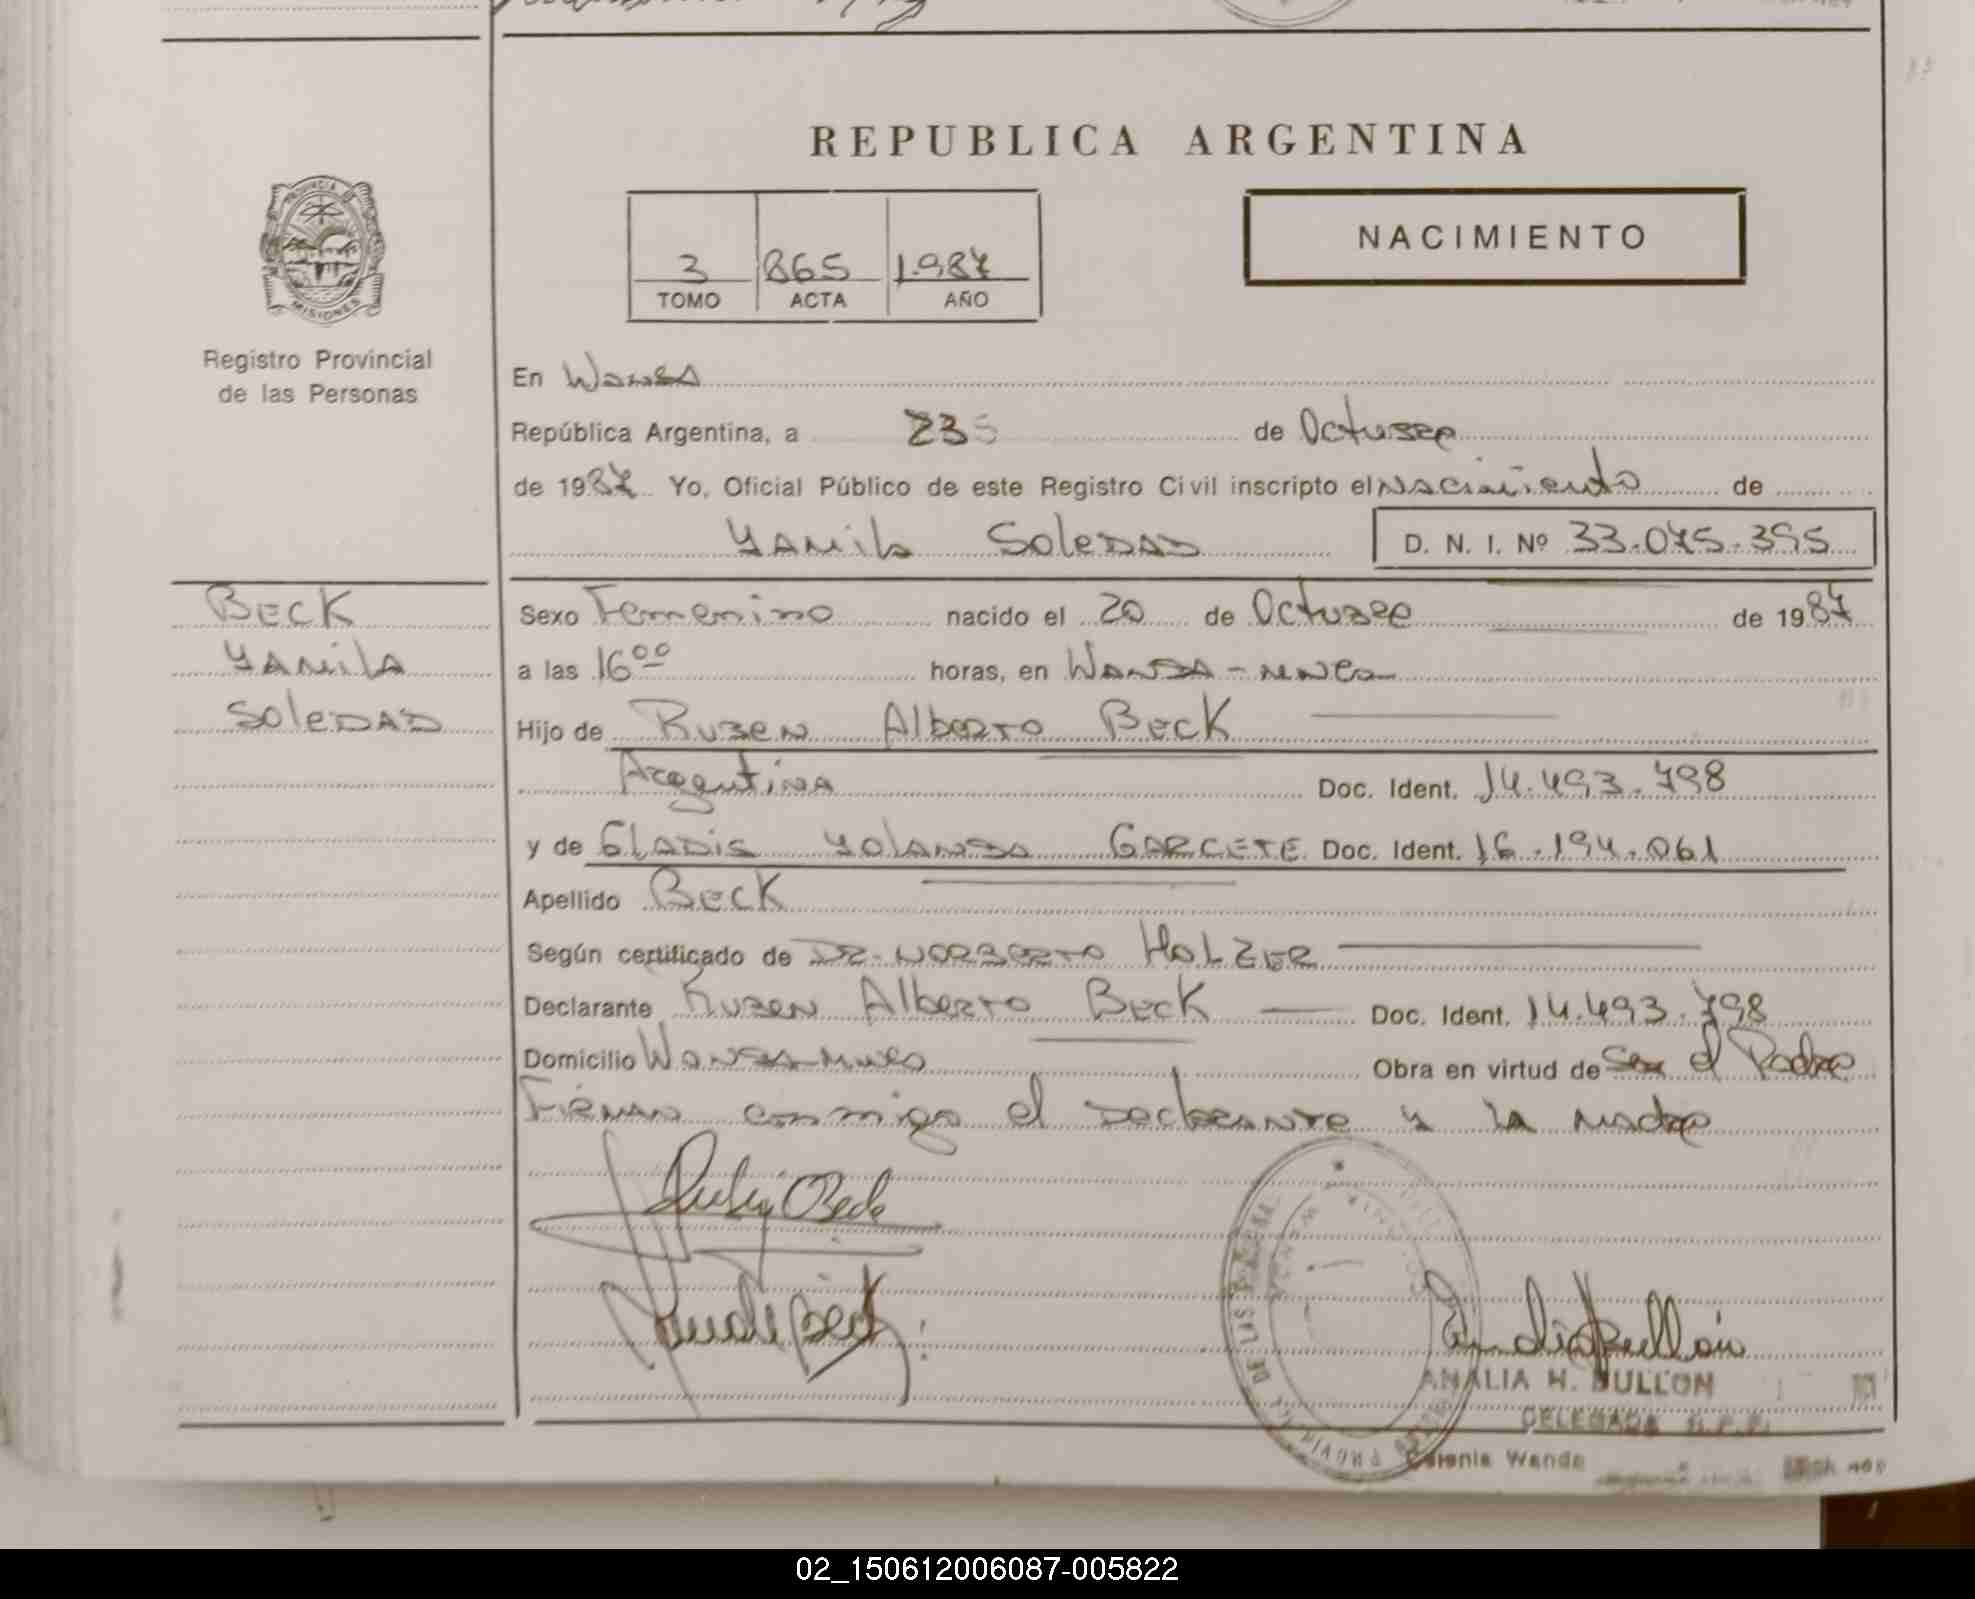 REPUBLICA ARGENTINA
PROVINCIA DE MISIONES
Registro Provincial
de las Personas
3 865 1.987
TOMO ACTA AÑO
NACIMIENTO
En Wanda
República Argentina, a 23 de Octubre
de 1987 Yo, Oficial Público de este Registro Civil inscripto el Nacimiento de
Yamila Soledad D. N. I. Nº 33.075.395
BECK
Yamila
Soledad
Sexo Femenino nacido el 20 de Octubre de 1987
a las 16⁰⁰ horas, en Wanda -
Hijo de Ruben Alberto Beck
Argentina Doc. Ident. 14.493.798
y de Gladis Yolanda GARCETE Doc. Ident. 16.194.061
Apellido Beck
Según certificado de Dr. NORBERTO HOLZER
Declarante Ruben Alberto Beck Doc. Ident. 14.493.798
Domicilio Wanda Obra en virtud de Ser el Padre
Firman conmigo el Declarante y la Madre
ANALIA H. BULLON
DELEGADA R.P.P.
Colonia Wanda
02_150612006087-005822